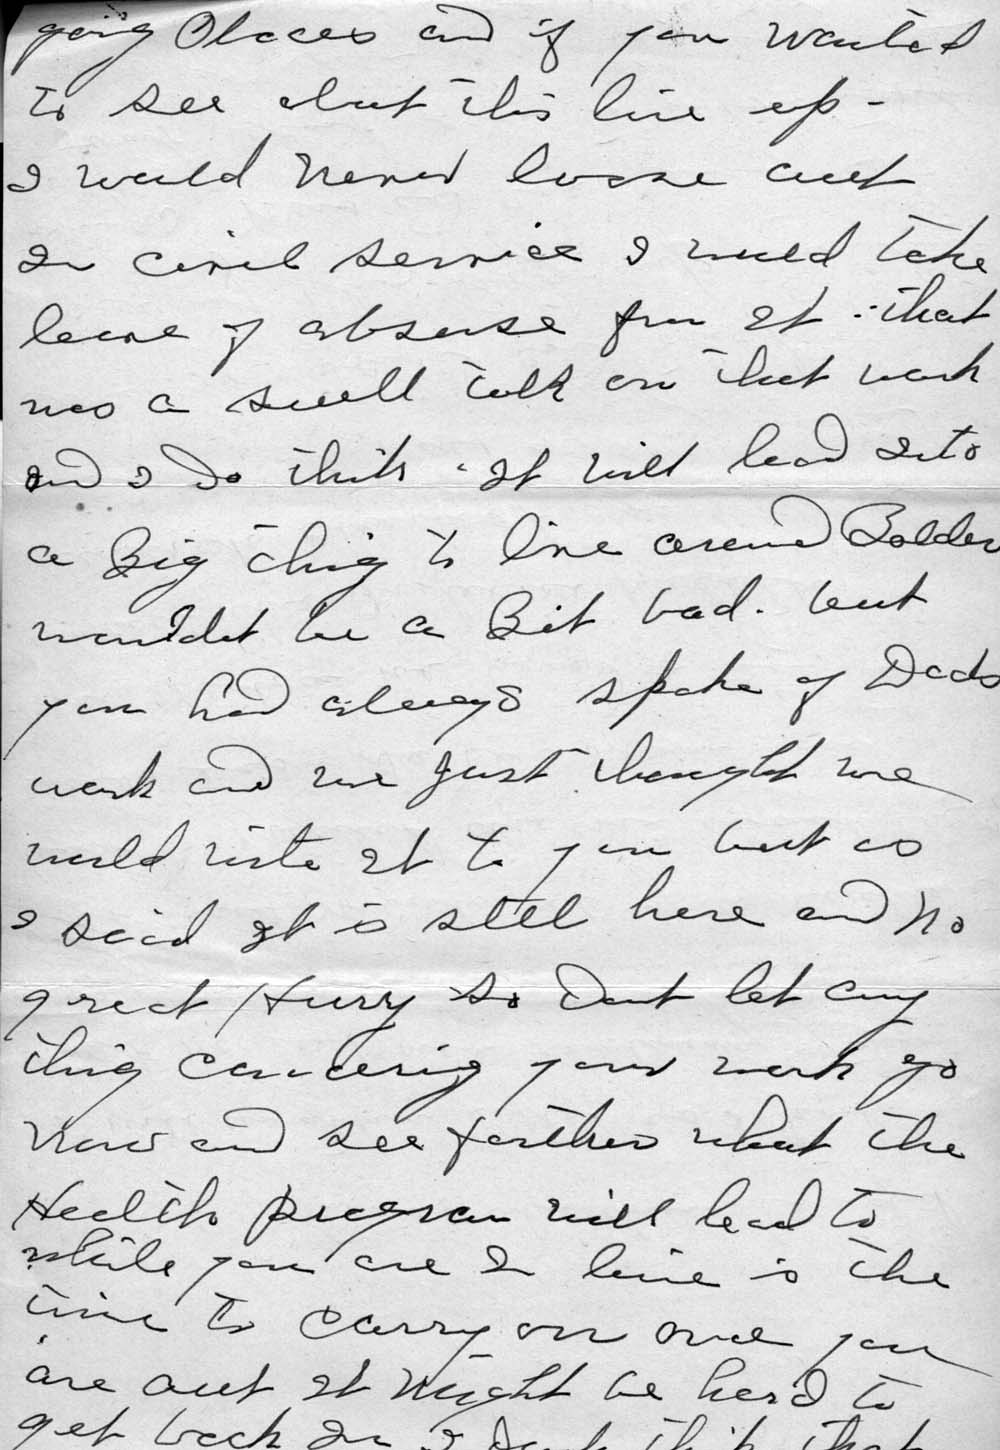 going Places and if you wanted
to see abut this line up -
I would never loose out
In civil service I would take
leave of absense from It . that
was a swell talk on that work
and I do think . It will lead Into
a Big thing to live around Bolder
wouldet be a Bit bad . but
you had always spoke of Dads
work and we just thought we
would write It to you but as
I said It is still here and No
great Hurry so Dont let any
thing concering your work go
now and see farther what the
Health program will lead to
while you are In line is the
time to carry on once you
are out It Might be hard to
get back In I dont think that